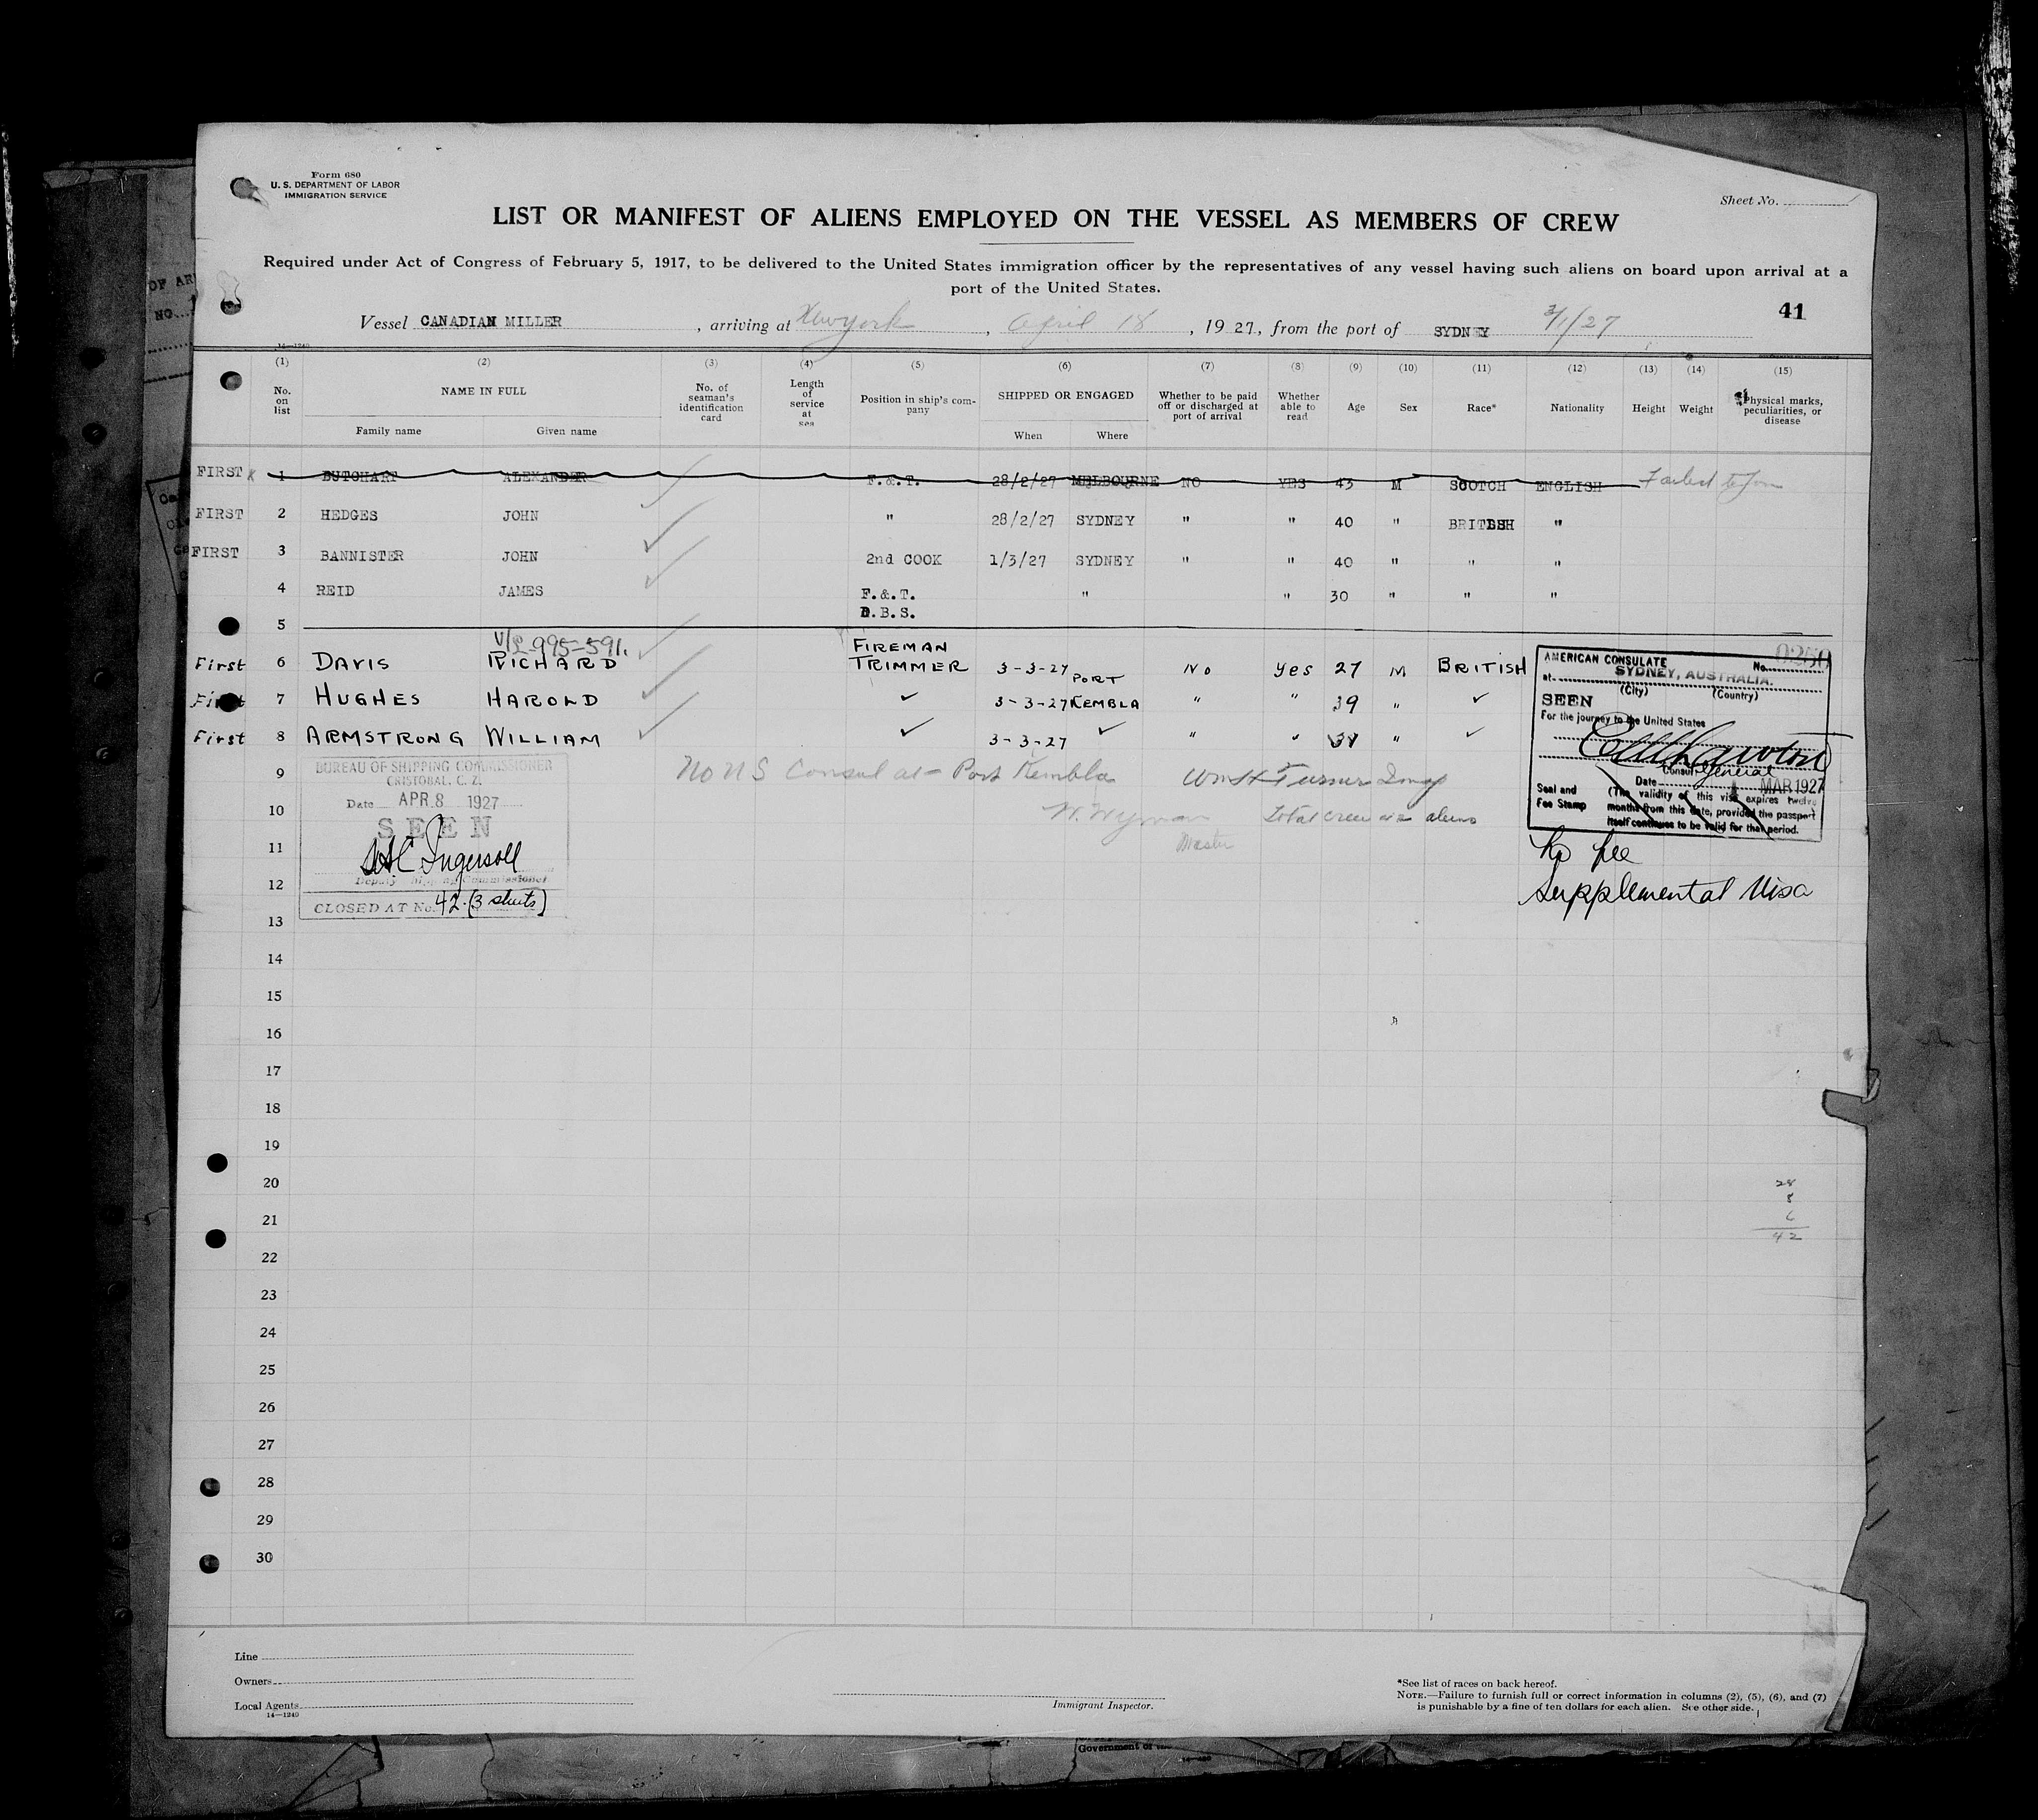 Form 680
U. S. DEPARTMENT OF LABOR
IMMIGRATION SERVICE
Sheet No.
LIST OR MANIFEST OF ALIENS EMPLOYED ON THE VESSEL AS MEMBERS OF CREW
Required under Act of Congress of February 5, 1917, to be delivered to the United States immigration officer by the representatives of any vessel having such aliens on board upon arrival at a
port of the United States.
41
Vessel CANADIAN MILLER, arriving at New York, April 18, 1927, from the port of SYDNEY 3/1/27
14—1240
(1) (2) (3) (4) (5) (6) (7) (8) (9) (10) (11) (12) (13) (14) (15)
No. on list NAME IN FULL Family name Given name No. of seaman's identification card Length of service at sea Position in ship's company SHIPPED OR ENGAGED When Where Whether to be paid off or discharged at port of arrival Whether able to read Age Sex Race* Nationality Height Weight Physical marks, peculiarities, or disease
FIRST x 1 BUTCHART ALEXANDER F.&.T. 28/2/27 MELBOURNE NO YES 43 M SCOTCH ENGLISH Failed to Join
FIRST 2 HEDGES JOHN " 28/2/27 SYDNEY " " 40 " BRITISH "
FIRST 3 BANNISTER JOHN 2nd COOK 1/3/27 SYDNEY " " 40 " " "
4 REID JAMES F.&.T. " " 30 " " "
D.B.S.
5
V/L 995-591.
FIREMAN
First 6 DAVIS RICHARD TRIMMER 3-3-27 No Yes 27 M BRITISH
First 7 HUGHES HAROLD ✓ 3-3-27 PORT KEMBLA " " 39 " ✓
First 8 ARMSTRONG WILLIAM ✓ 3-3-27 ✓ " " " ✓
AMERICAN CONSULATE No. 0250
at SYDNEY, AUSTRALIA.
(City) (Country)
SEEN
For the journey to the United States
Consul General
Date MAR 1927
Seal and Fee Stamp
(The validity of this visa expires twelve
months from this date, provided the passport
itself continues to be valid for that period.
No fee
Supplemental Visa
9 No US Consul at Port Kembla Wm H Turner Insp
10 W. Wyman Total crew 42 aliens
11 Master
BUREAU OF SHIPPING COMMISSIONER
CRISTOBAL, C. Z.
Date APR 8 1927
SEEN
Ingersoll
Deputy Shipping Commissioner
CLOSED AT No. 42 (3 sheets)
12
13
14
15
16
17
18
19
20
21
22
23
24
25
26
27
28
29
30
28
8
6
42
Line
Owners
Local Agents
14—1240
Immigrant Inspector.
*See list of races on back hereof.
NOTE.—Failure to furnish full or correct information in columns (2), (5), (6), and (7)
is punishable by a fine of ten dollars for each alien. See other side.
Government of